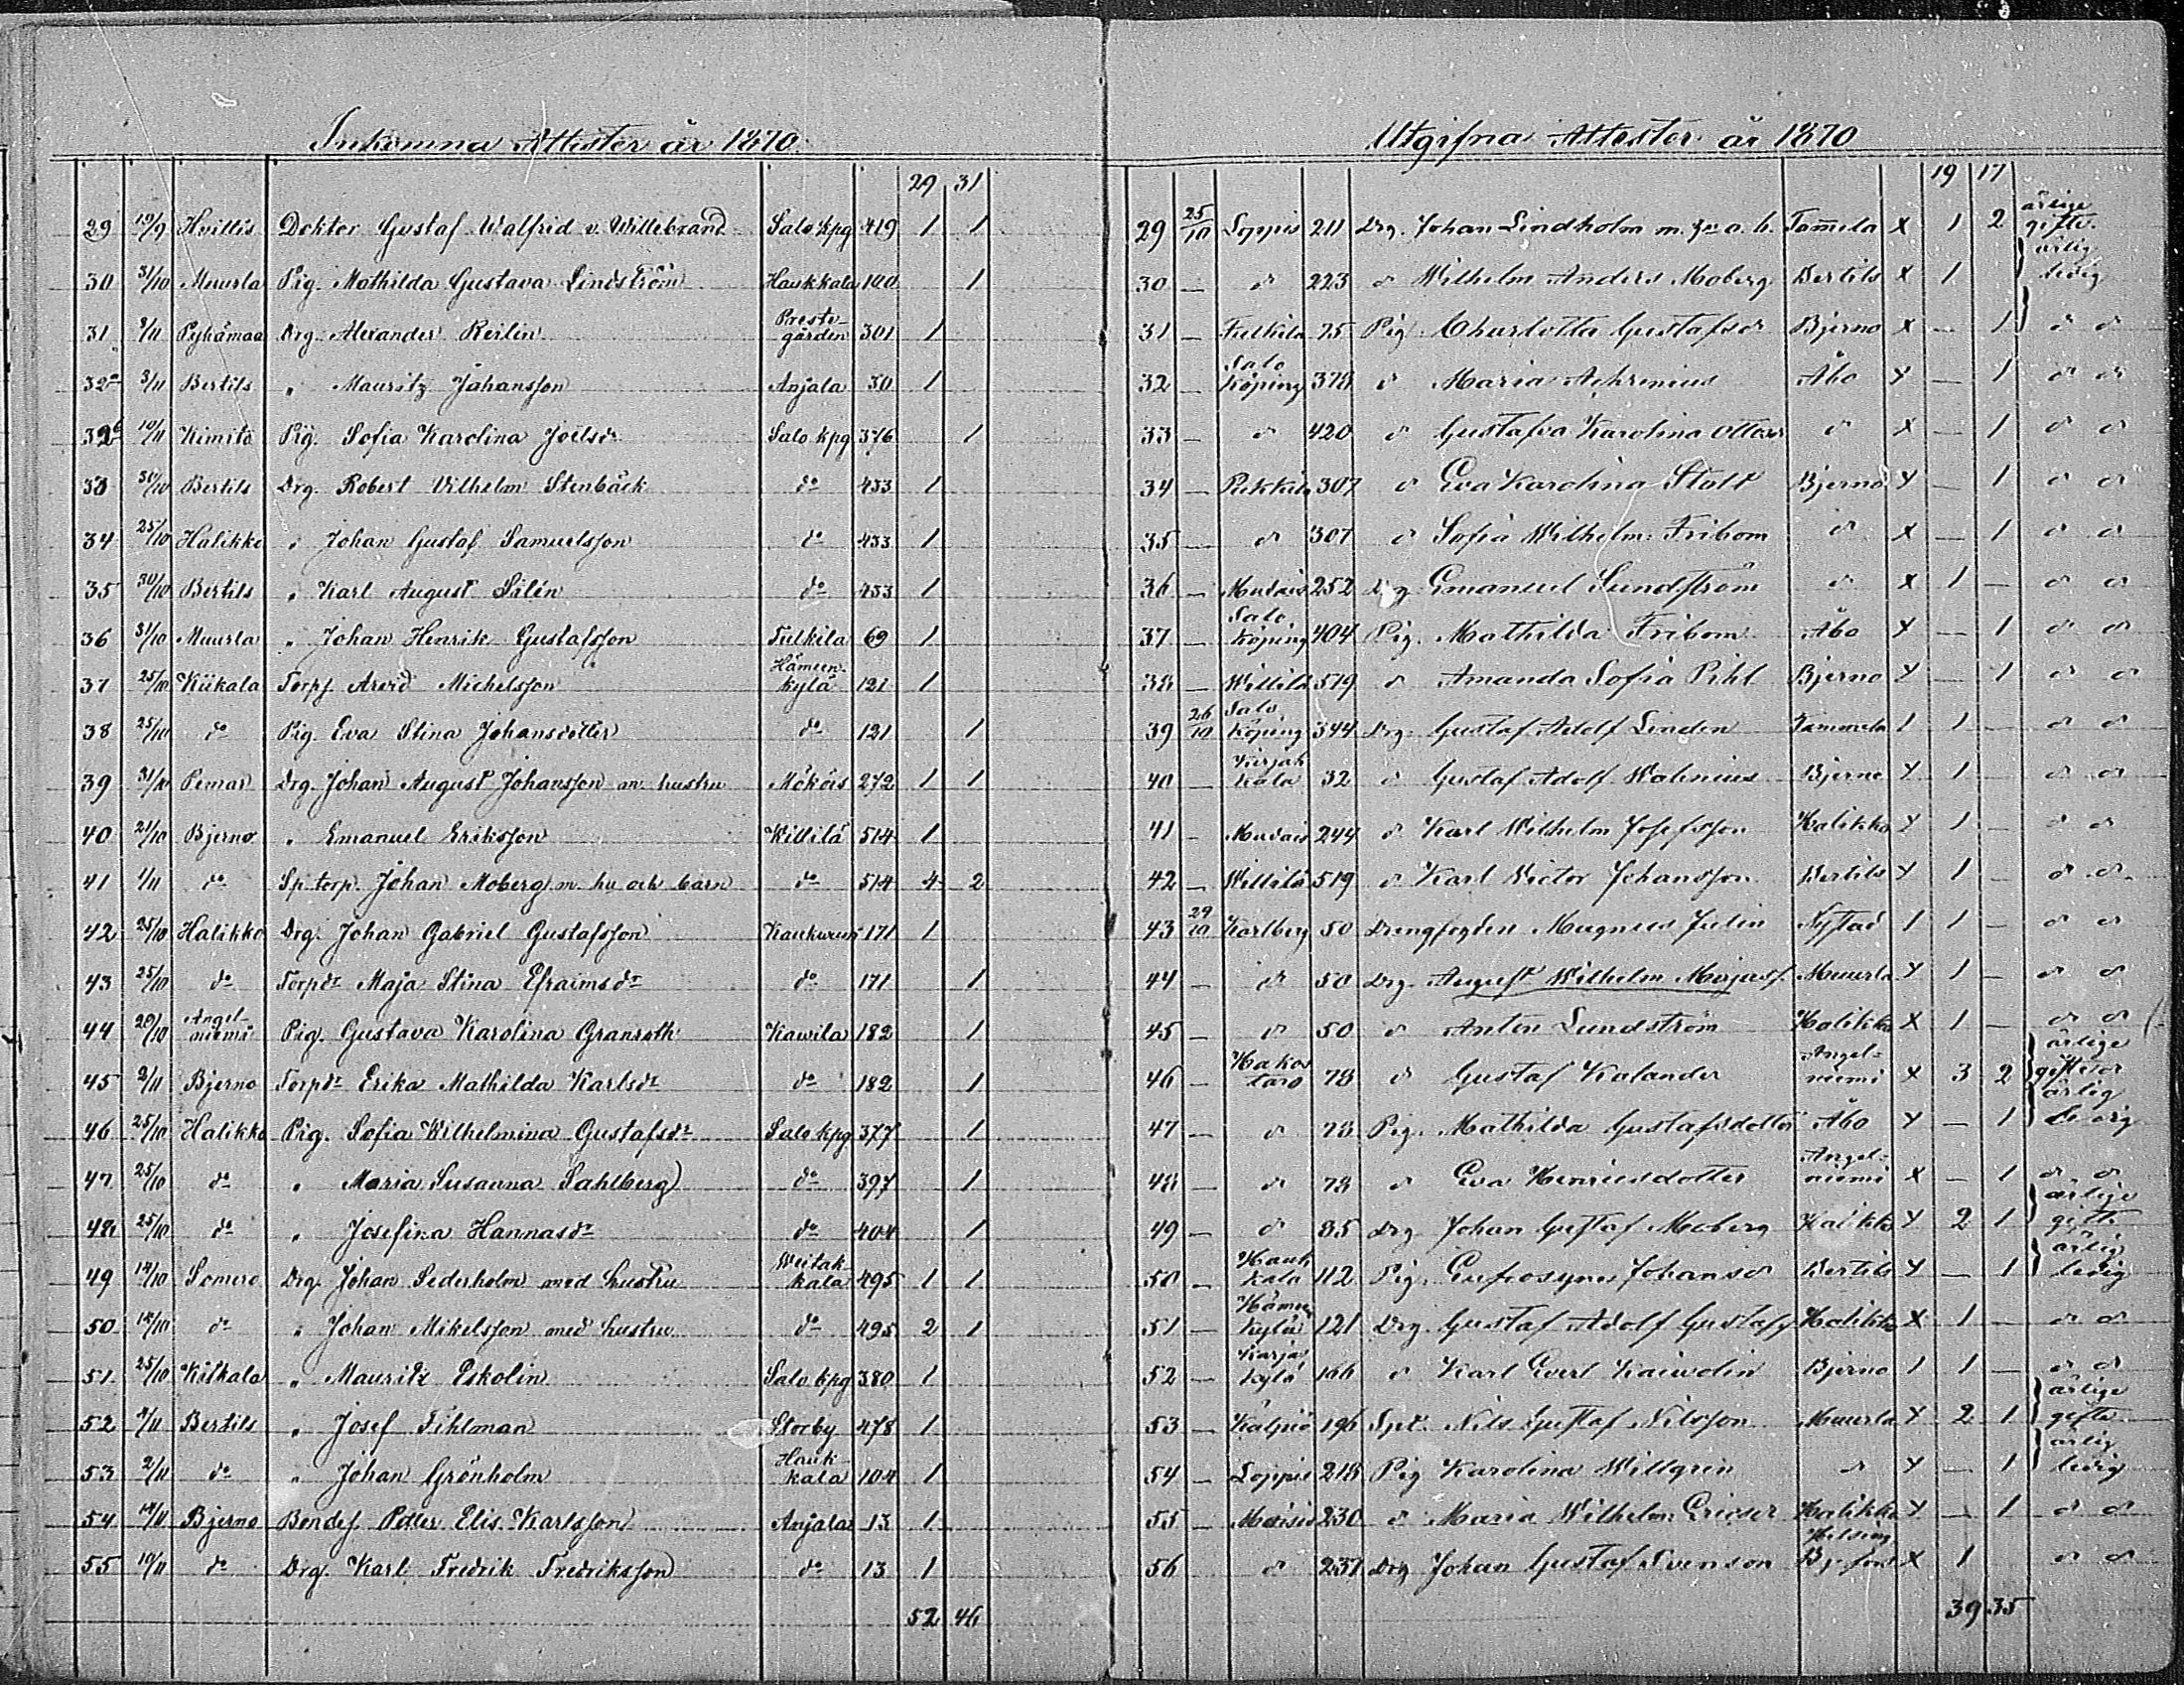 Inkomna Attester år 1870.
29 31
29 19/9 Hvittis Doktor Gustaf Walfrid v. Willebrand Salo kpg 419 1 1
30 31/10 Muurla Pig. Mathilda Gustava Lindström Haukkala 100 1
31 9/11 Pyhämaa Drg. Alexander Reilin Preste-gården 301 1
32a 3/11 Bertils " Mauritz Johansson Anjala 30 1
32b 10/11 Kimito Pig. Sofia Karolina Joelsdr Salo kpg 376 1
33 31/10 Bertils Drg. Robert Vilhelm Stenbäck do 433 1
34 25/10 Halikko " Johan Gustaf Samuelsson do 433 1
35 30/10 Bertils " Karl August Silén do 433 1
36 31/10 Muurla " Johan Henrik Gustafsson Tulkila 69 1
37 25/10 Kiikala Torps. Arvid Michelsson Hämeen-kylä 121 1
38 25/10 do Pig. Eva Stina Johansdotter do 121 1
39 31/10 Pemar Drg. Johan August Johansson m. hustru Mököis 272 1 1
40 21/10 Bjerno " Emanuel Eriksson Willilä 514 1
41 1/11 do Sp. torp. Johan Moberg m. hu och barn do 514 4 2
42 25/10 Halikko Drg. Johan Gabriel Gustafsson Kaukurun 171 1
43 25/10 do Torpdr Maja Stina Efraimsdr do 171 1
44 20/10 Angel-niemi Pig. Gustava Karolina Granroth Kavila 182 1
45 2/11 Bjerno Torpdr Erika Mathilda Karlsdr do 182 1
46 25/10 Halikko Pig. Sofia Wilhelmina Gustafsdr Salo kpg 377 1
47 25/10 do " Maria Susanna Sahlberg do 397 1
48 25/10 do " Josefina Hannasdr do 404 1
49 14/10 Somero Drg. Johan Sederholm med hustru Veitak kala 495 1 1
50 14/10 do " Johan Mikelsson med hustru do 495 2 1
51 25/10 Kiikala " Mauritz Eskolin Salo kpg 380 1
52 4/11 Bertils " Josef Fihlman Storby 478 1
53 2/11 do " Johan Grönholm Hauk-kala 104 1
54 14/11 Bjerno Bondes. Peter Elis Karlsson Anjala 13 1
55 10/11 do Drg. Karl Fredrik Fredriksson do 13 1
52 46
Utgifna Attester år 1870
19 17
29 25/10 Loppis 211 Drg. Johan Lindholm m. h. o. b. Tammela x 1 2 ärlige gifte
30 — d 223 d Wilhelm Anders Moberg Bertils x 1 ärlig ledig
31 — Tulkila 25 Pig Charlotta Gustafsdr Bjerno x — 1 d d
32 — Salo Köping 378 d Maria Achrenius Åbo x — 1 d d
33 — d 420 d Gustafva Karolina Ottosdr d x — 1 d d
34 — Pukkila 307 d Eva Karolina Stolt Bjerno x — 1 d d
35 — d 307 d Sofia Wilhelm. Fribom d x — 1 d d
36 — Mudais 252 Drg Emanuel Sundström d x 1 — d d
37 — Salo Köping 404 Pig. Mathilda Fribom Åbo x — 1 d d
38 — Willilä 519 d Amanda Sofia Pihl Bjerno x — 1 d d
39 26/10 Salo Köping 344 Drg. Gustaf Adolf Linden Tammela 1 1 — d d
40 — Kirjak kala 32 d Gustaf Adolf Walenius Bjerno x 1 — d d
41 — Mudais 244 d Karl Wilhelm Josefsson Halikko x 1 — d d
42 — Willilä 519 d Karl Victor Johansson Bertils x 1 — d d
43 29/10 Karlberg 50 Drengfogden Magnus Julin Nystad 1 1 — d d
44 — d 50 Drg. August Wilhelm Majas. Muurla x 1 — d d
45 — d 50 d Anton Lundström Halikko x 1 — d d
46 — Hakos taro 78 d Gustaf Kalander Angel-niemi x 3 2 ärlige gifte
47 — d 78 Pig. Mathilda Gustafsdotter Åbo x — 1 ärlig ledig
48 — d 78 d Eva Henricsdotter Angel-niemi x — 1 d d
49 — d 85 Drg Johan Gustaf Moberg Halikko x 2 1 ärlige gifte
50 — Hauk kala 112 Pig. Eufrosyne Johansdr Bertils x — 1 ärlig ledig
51 — Hämeen Kylä 121 Drg. Gustaf Adolf Gustafs. Halikko x 1 — d d
52 — Karjas kylä 166 d Karl Evert Kaivolin Bjerno 1 1 — d d
53 — 196 Spt. Nils Gustaf Nilsson Muurla x 2 1 ärlige gifte
54 — Loppis 218 Pig Karolina Willgrin d x — 1 ärlig ledig
55 — Maisis 230 d Maria Wilhelm. Ericsdr Halikko x — 1 d d
56 d 237 Drg Johan Gustaf Svenson Helsing x 1 d d
39 35